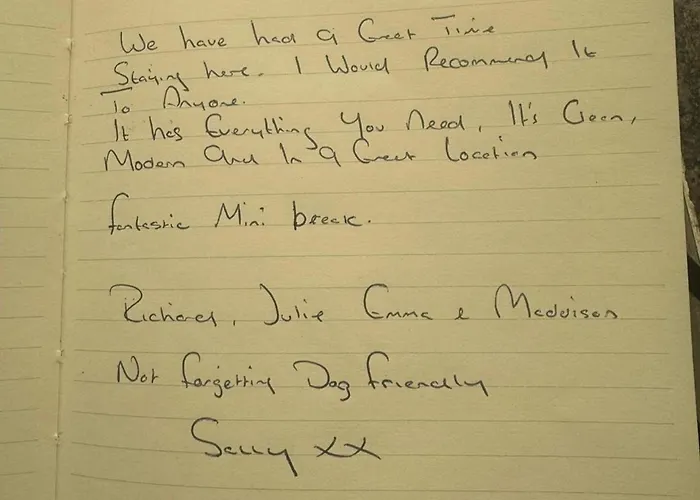 We have had a Great Time
Staying here. I Would Recommend It
To Anyone.
It has Everything You Need, It's Clean,
Modern And In a Great Location
fantastic Mini break.
Richard, Julie Emma & Maddison
Not forgetting Dog friendly
Sally xx